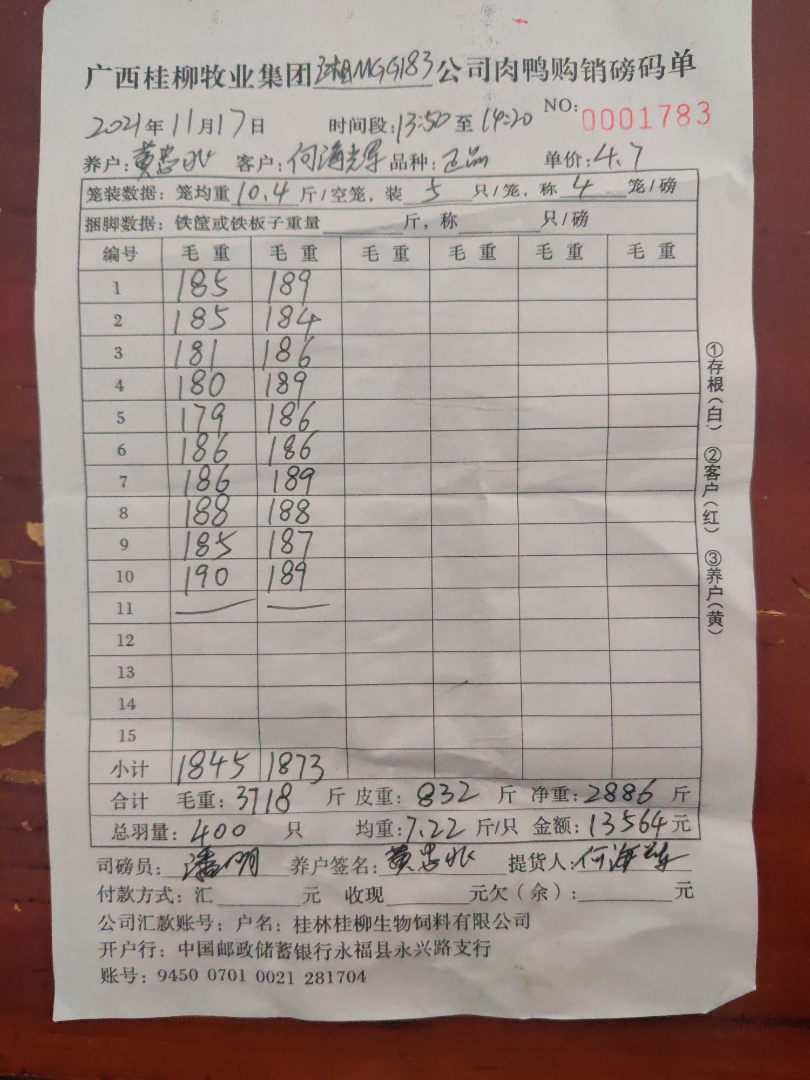 广西桂柳牧业集团湘MGG183公司肉鸭购销磅码单
2021年11月17日 时间段:13:50至14:20 NO: 0001783
养户:黄忠 客户:何海 品种:正品 单价:4.7
笼装数据: 笼均重10.4斤/空笼, 装5只/笼, 称4笼/磅
捆脚数据: 铁筐或铁板子重量____斤, 称____只/磅
编号 毛重 毛重 毛重 毛重 毛重 毛重
1 185 189
2 185 184
3 181 186
4 180 189
5 179 186
6 186 186
7 186 189
8 188 188
9 185 187
10 190 189
11 — —
12
13
14
15
小计 1845 1873
合计 毛重:3718斤 皮重:832斤 净重:2886斤
总羽量:400只 均重:7.22斤/只 金额:13564元
司磅员:潘明 养户签名:黄忠 提货人:何海
付款方式:汇____元 收现____元欠(余):____元
公司汇款账号: 户名: 桂林桂柳生物饲料有限公司
开户行: 中国邮政储蓄银行永福县永兴路支行
账号: 9450 0701 0021 281704
①存根(白) ②客户(红) ③养户(黄)